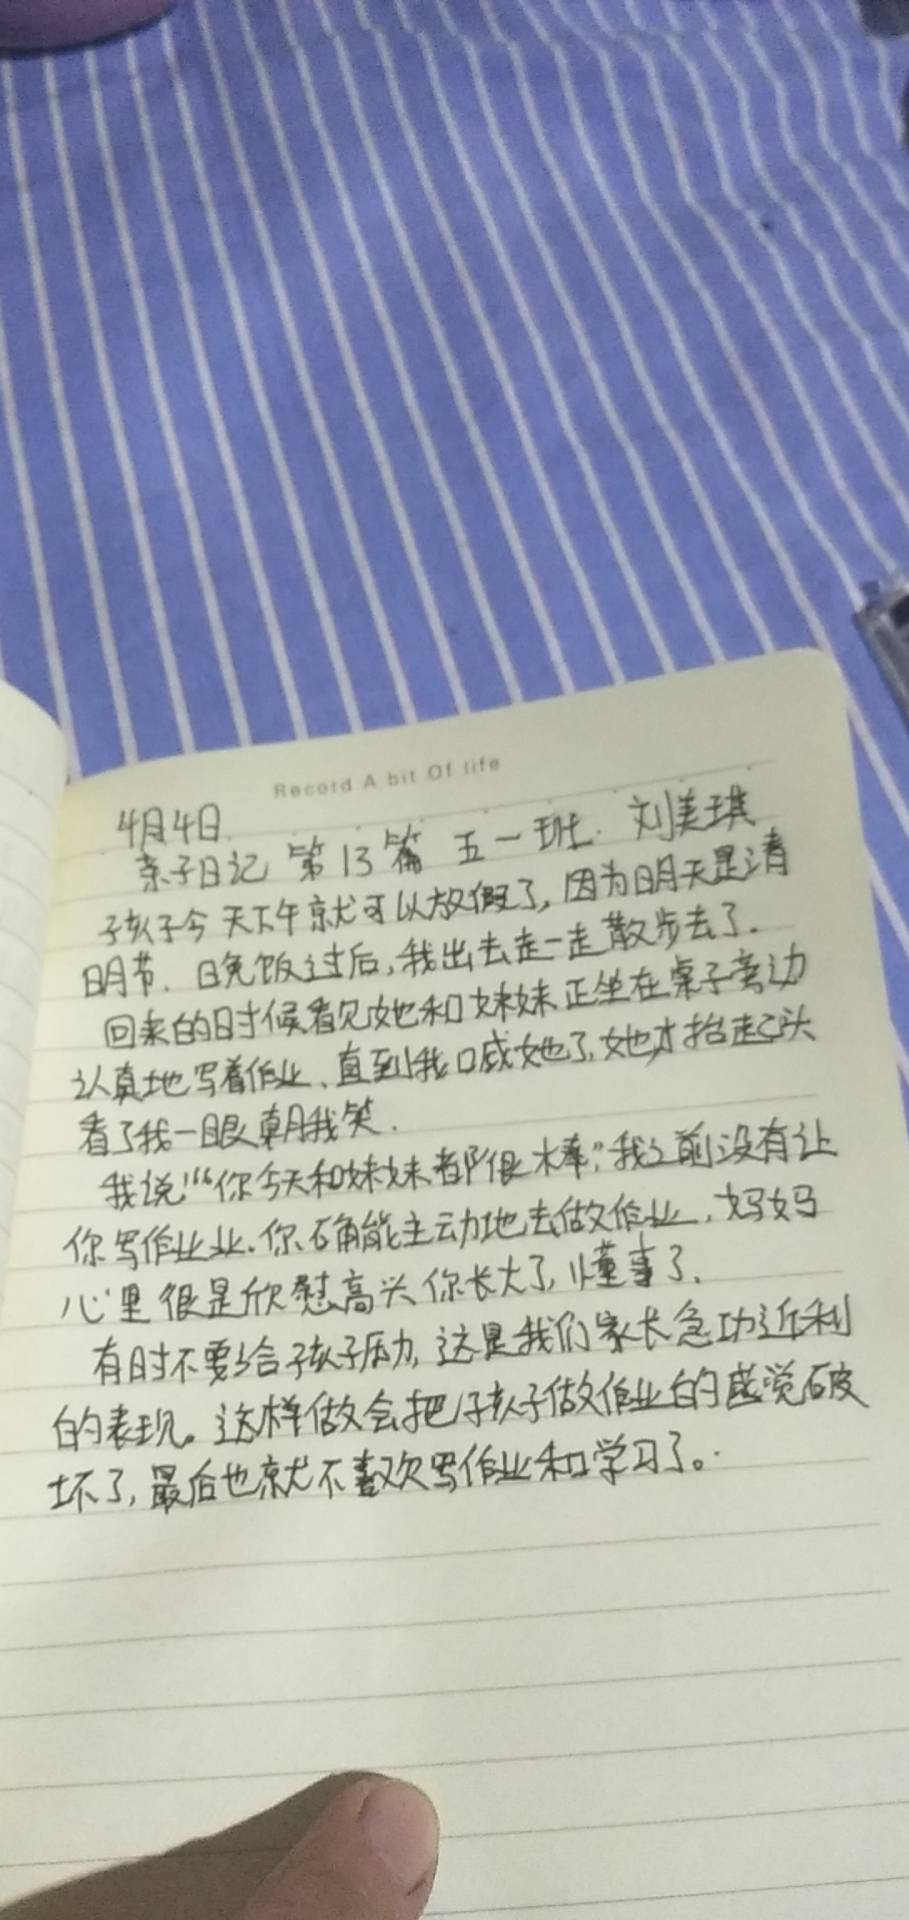 Record A bit Of life
4月4日
亲子日记 第13篇 五一班. 刘美琪
孩子今天下午就可以放假了,因为明天是清
明节.晚饭过后,我出去走一走散步去了.
回来的时候看见她和妹妹正坐在桌子旁边
认真地写着作业、直到我喊她了,她才抬起头
看了我一眼朝我笑.
我说:“你今天和妹妹都很棒,”我之前没有让
你写作业业.你确能主动地去做作业,妈妈
心里很是欣慰高兴你长大了,懂事了.
有时不要给孩子压力,这是我们家长急功近利
的表现。这样做会把孩子做作业的感觉破
坏了,最后也就不喜欢写作业和学习了。